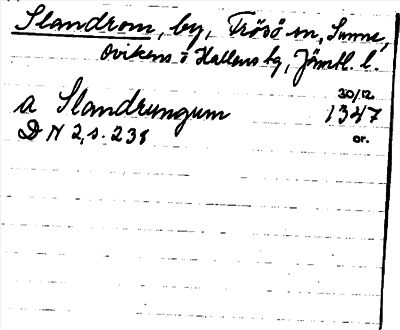 Slandrom, by, Frösö sn, Sunne,
Ovikens o Hallens tg, Jämtl. l.
30/12
a Slandrungum 1347
D N 2, s. 238 or.